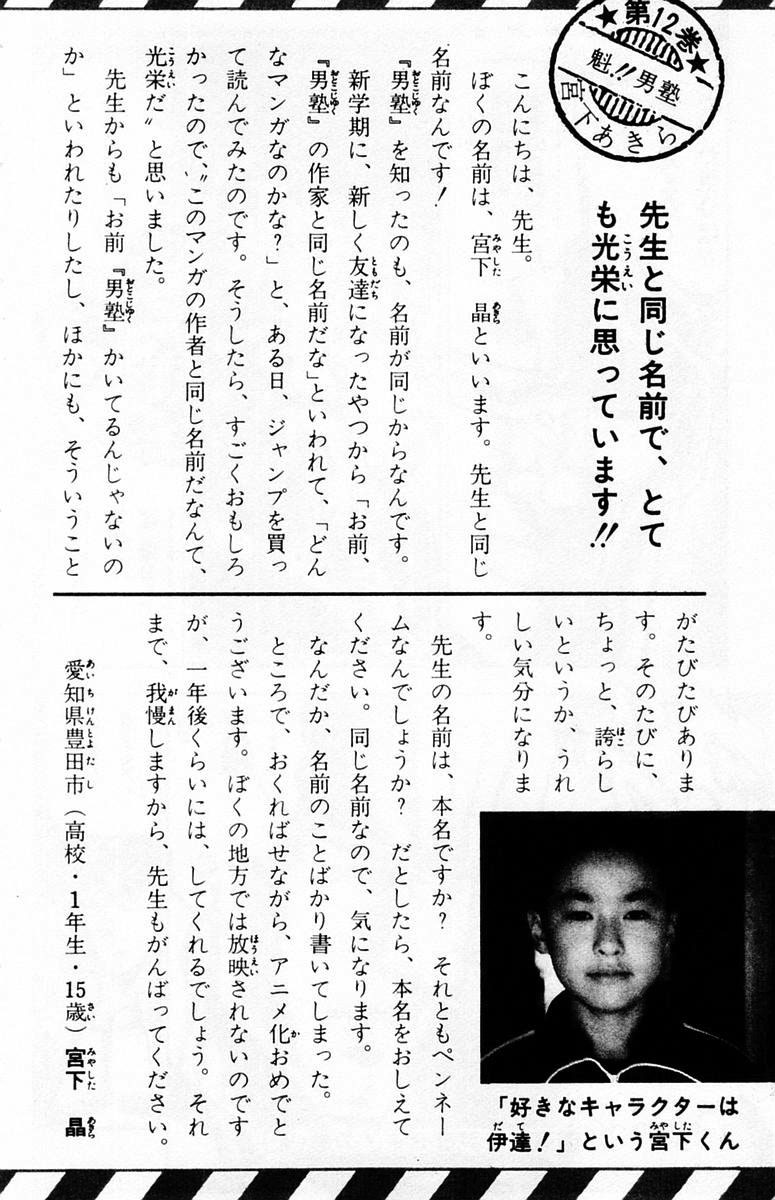 ★第12巻★
魁!!男塾
宮下あきら
先生と同じ名前で、とて
も光栄に思っています!!
こんにちは、先生。
ぼくの名前は、宮下 晶といいます。先生と同じ
名前なんです!
『男塾』を知ったのも、名前が同じからなんです。
新学期に、新しく友達になったやつから「お前、
『男塾』の作家と同じ名前だな」といわれて、「どん
なマンガなのかな?」と、ある日、ジャンプを買っ
て読んでみたのです。そうしたら、すごくおもしろ
かったので、〝このマンガの作者と同じ名前だなんて、
光栄だ〟と思いました。
先生からも「お前『男塾』かいてるんじゃないの
か」といわれたりしたし、ほかにも、そういうこと
がたびたびありま
す。そのたびに、
ちょっと、誇らし
いというか、うれ
しい気分になりま
す。
先生の名前は、本名ですか? それともペンネー
ムなんでしょうか? だとしたら、本名をおしえて
ください。同じ名前なので、気になります。
なんだか、名前のことばかり書いてしまった。
ところで、おくればせながら、アニメ化おめでと
うございます。ぼくの地方では放映されないのです
が、一年後くらいには、してくれるでしょう。それ
まで、我慢しますから、先生もがんばってください。
愛知県豊田市(高校・1年生・15歳)宮下 晶
「好きなキャラクターは
伊達!」という宮下くん